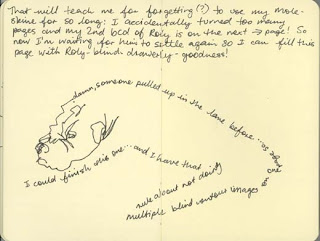 That will teach me for forgetting(?) to use my mole-
skine for so long: I accidentally turned too many
pages and my 2nd bcd of Roly is on the next → page! So
now I'm waiting for him to settle again so I can fill this
page with Roly-blind-drawerly-goodness!
damn, someone pulled up in the lane before... as
I could finish this one... and I have that
rule about not doing
multiple blind contour images on one page